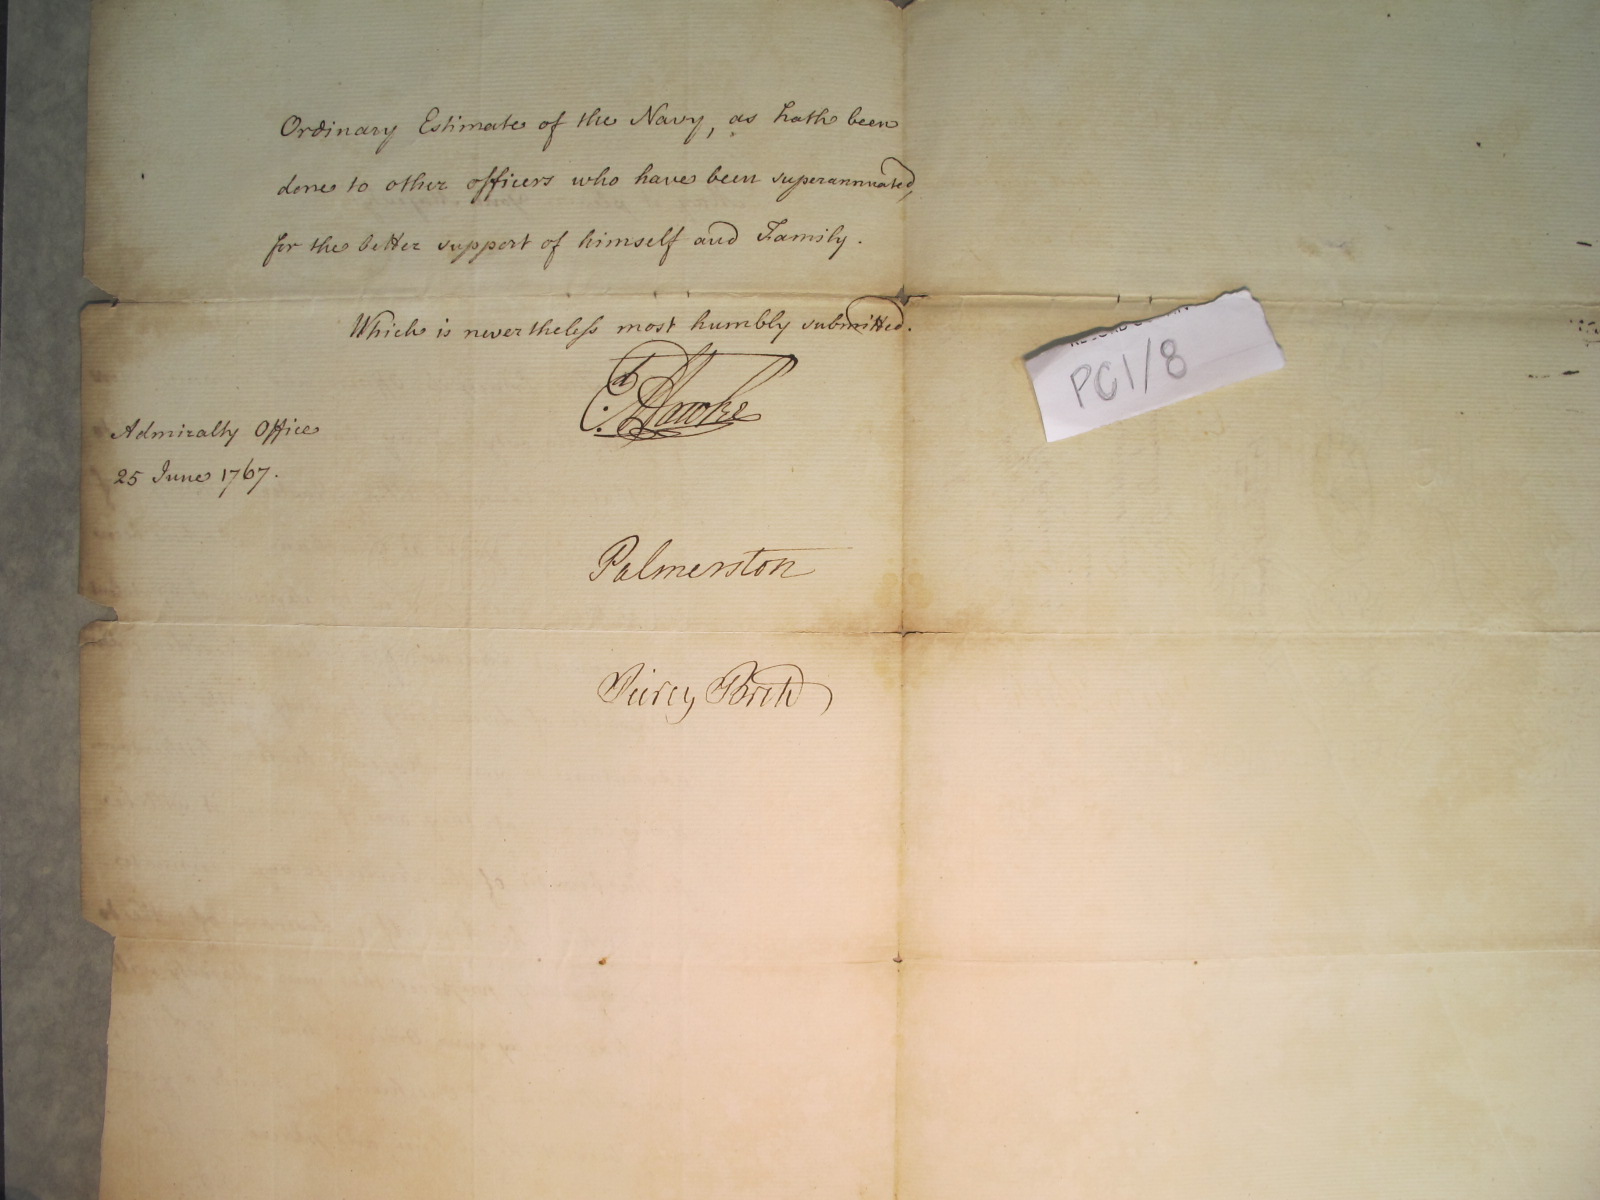 Ordinary Estimate of the Navy, as hath been
done to other officers who have been superannuated,
for the better support of himself and Family.
Which is nevertheless most humbly submitted.
Ed Hawke
Admiralty Office
25 June 1767.
Palmerston
Piercy Brett
PC1/8